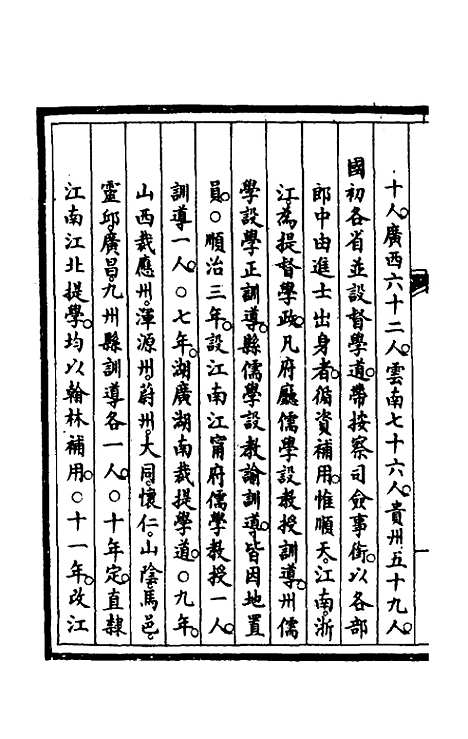 十人。廣西六十二人。雲南七十六人。貴州五十九人。
國初各省並設督學道。帶按察司僉事銜。以各部
郎中由進士出身者。循資補用。惟順天。江南。浙
江。為提督學政。凡府廳儒學設教授訓導。州儒
學設學正訓導。縣儒學設教諭訓導。皆因地置
員。○順治三年。設江南江甯府儒學教授一人。
訓導一人。○七年。湖廣湖南裁提學道。○九年。
山西裁應州。渾源州。蔚州。大同。懷仁。山陰。馬邑。
靈邱。廣昌。九州縣訓導各一人。○十年。定直隸
江南江北提學。均以翰林補用。○十一年。改江